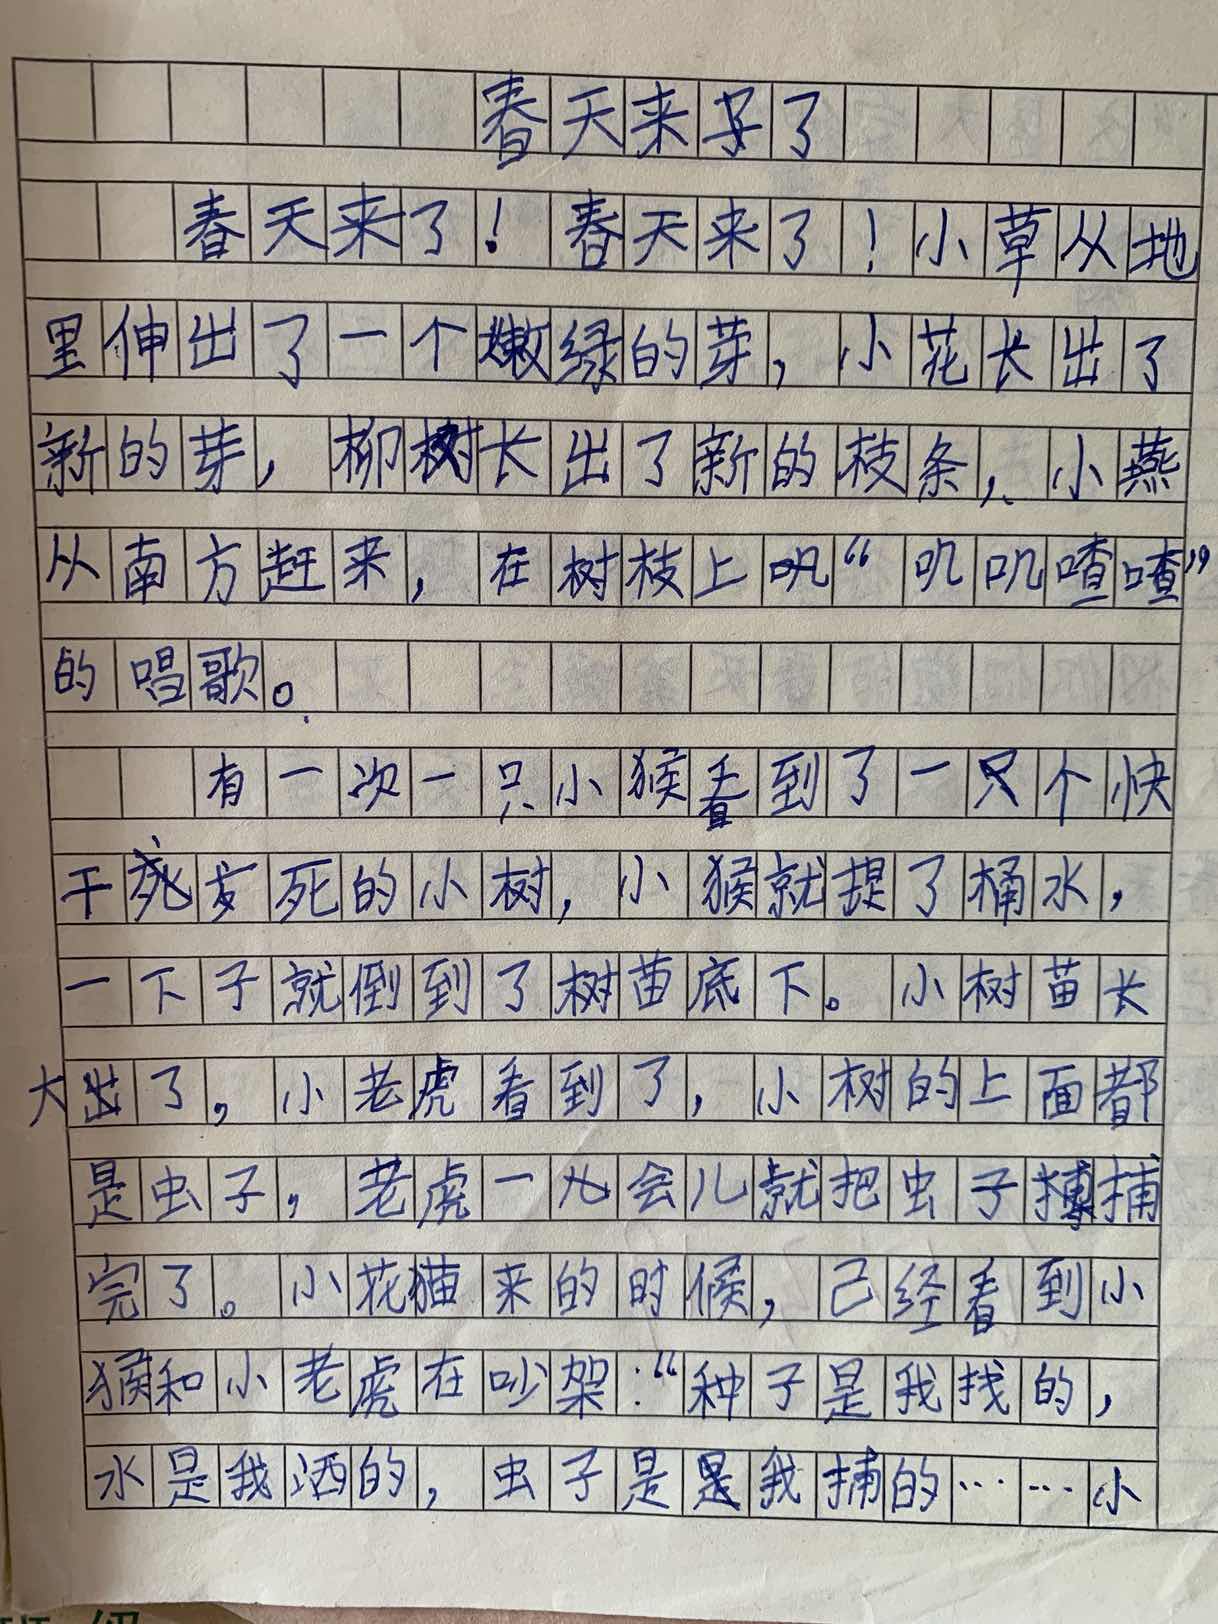 春天来了了
春天来了！春天来了！小草从地
里伸出了一个嫩绿的芽，小花长出了
新的芽，柳树长出了新的枝条，小燕
从南方赶来，在树枝上叽“叽叽喳喳”
的唱歌。
有一次一只小猴看到了一只个快
干死死的小树，小猴就提了桶水，
一下子就倒到了树苗底下。小树苗长
大出了，小老虎看到了，小树的上面都
是虫子，老虎一会儿就把虫子捕
完了。小花猫来的时候，已经看到小
猴和小老虎在吵架：“种子是我找的，
水是我洒的，虫子是是我捕的……小